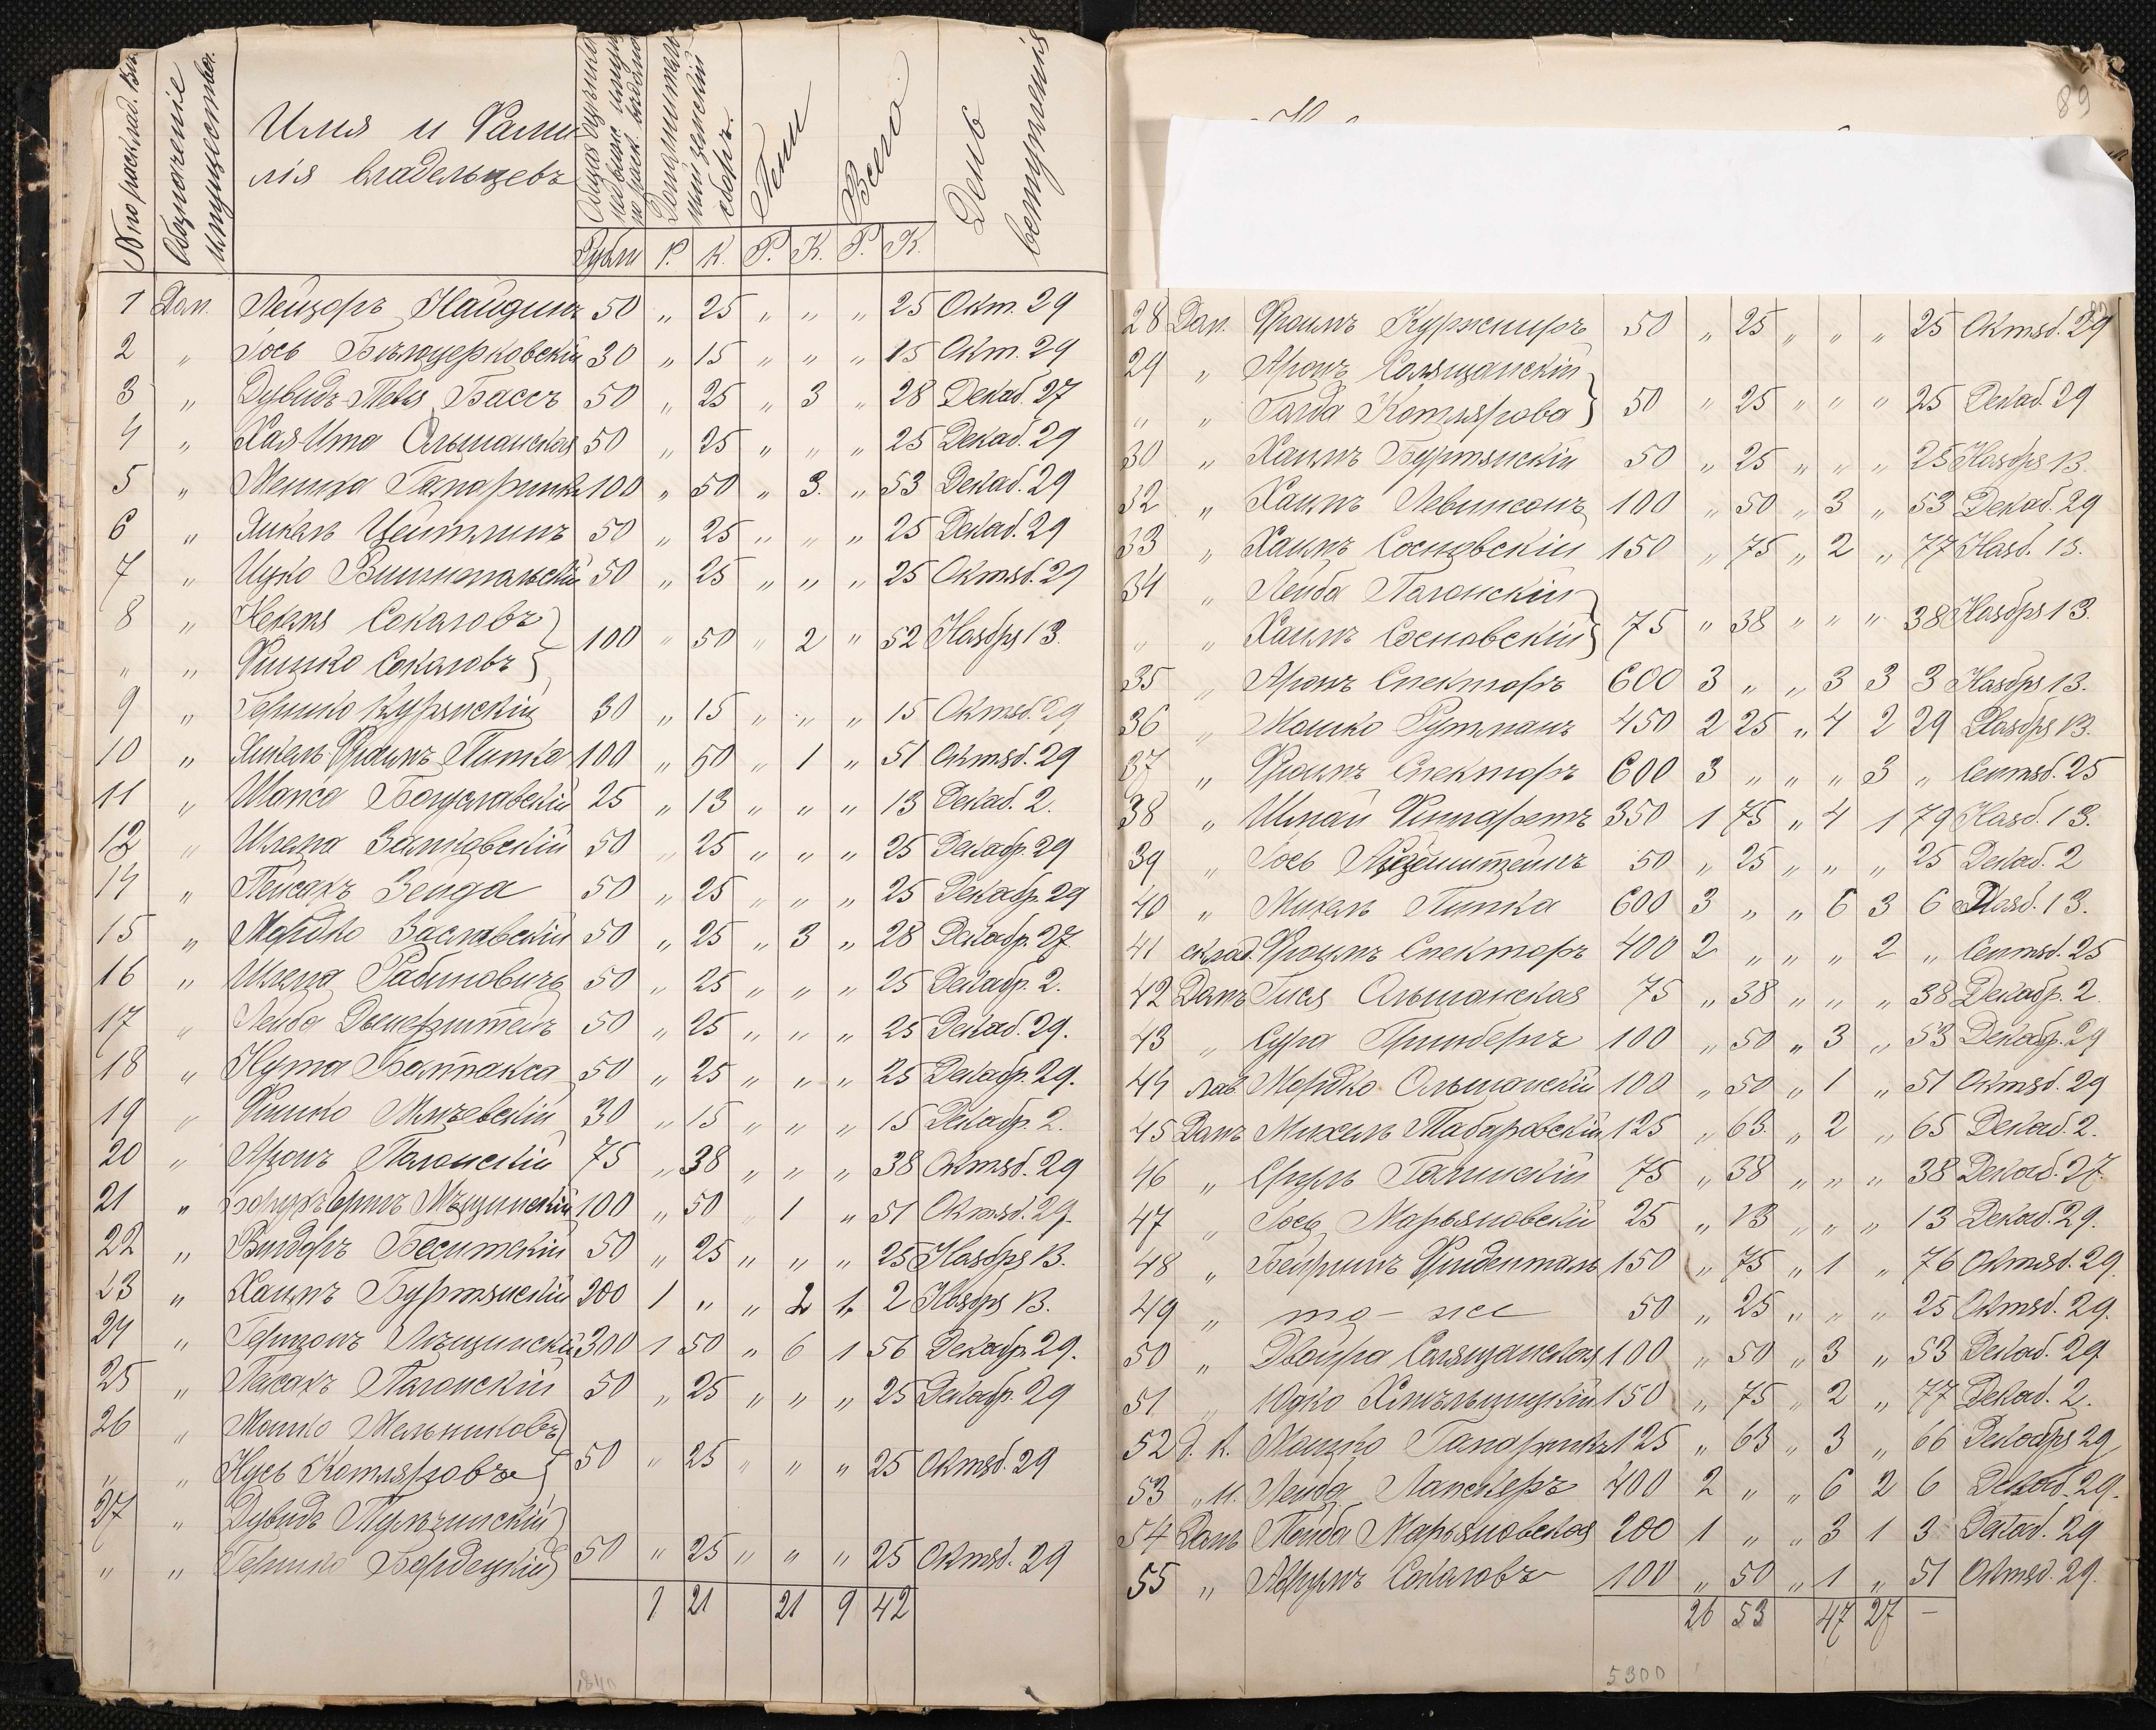 № по расклад. вѣд.
Обозначеніе имущества.
Имя и Фами
лія владельцевъ
Дополнитель
ный земскій
сборъ.
Пени
Всего
День
вступленія
Рубли Р. К. Р. К. Р. К.
1 Дом. Лейзоръ Найдинъ 50 „ 25 „ „ „ 25 Окт. 29
2 „ Іось Бѣлоцерковскій 30 „ 15 „ „ „ 15 Окт. 29
3 „ Дувидъ Басъ 50 „ 25 „ 3 „ 28 Декаб. 27
4 „ Хая-Ита Ольшанская 50 „ 25 „ „ „ 25 Декаб. 29
5 „ 100 „ 50 „ 3. „ 53 Декаб. 29
6 „ Янкель Цейтлинъ 50 „ 25 „ „ „ 25 Декаб. 29
7 „ Ицко Вишнопольскій 50 „ 25 „ „ „ 25 Октяб. 29
8 „ Соколовъ
100 „ 50 „ 2 „ 52 Ноября 13.
„ „ Фишко Соколовъ
9 „ Гершко Курянскій 30 „ 15 „ „ „ 15 Октяб. 29
10 „ Янкель-Фроимъ Пинка 100 „ 50 „ 1 „ 51 Октяб. 29
11 „ Богуславскій 25 „ 13 „ „ „ 13 Декаб. 2.
12 „ Шлема 50 „ 25 „ „ „ 25 Декабр. 29
14 „ Пейсахъ Зейда 50 „ 25 „ „ „ 25 Декабр. 29
15 „ Мордко Заславскій 50 „ 25 „ 3 „ 28 Декабр. 27
16 „ Шлема Рабиновичъ 50 „ 25 „ „ „ 25 Декабр. 2.
17 „ Лейба 50 „ 25 „ „ „ 25 Декаб. 29.
18 „ Нута 50 „ 25 „ „ „ 25 Декабр. 29.
19 „ Фишко 30 „ 15 „ „ „ 15 Декабр. 2.
20 „ Аронъ Полонскій 75 „ 38 „ „ „ 38 Октяб. 29
21 „ 100 „ 50 „ 1 „ 51 Октяб. 29.
22 „ Вигдоръ 50 „ 25 „ „ „ 25 Ноября 13.
23 „ Хаимъ Буртянскій 200 1 „ „ 2 1 2 Ноября 13.
24 „ Гершонъ 300 1 50 „ 6 1 56 Декабр. 29.
25 „ Пейсахъ Полонскій 50 „ 25 „ „ „ 25 Декабр. 29
26 „ Мошко Мельниковъ
50 „ 25 „ „ „ 25 Октяб. 29
„ „ Нусь Котляровъ
27 „ Дувидъ Тульчинскій
50 „ 25 „ „ „ 25 Октяб. 29
„ „ Гершко Бердецкій
9 21 21 9 42
1840
89
28 Дом. Фроимъ Куржнеръ 50 „ 25 „ „ „ 25 Октяб. 29
29 „ Аронъ Солящанскій
50 „ 25 „ „ „ 25 Декаб. 29
„ „ Голда Котлярова
30 „ Хаимъ Буртянскій 50 „ 25 „ „ „ 25 Ноября 13.
32 „ Хаимъ Левинсонъ 100 „ 50 „ 3 „ 53 Декаб. 29
33 „ Хаимъ Сосновскій 150 „ 75 „ 2 „ 77 Нояб. 13.
34 „ Лейба Полонскій
75 „ 38 „ „ „ 38 Ноября 13.
„ „ Хаимъ Сосновскій
35 „ Аронъ Спекторъ 600 3 „ „ 3 3 3 Ноября 13.
36 „ Мошко Гутманъ 450 2 25 „ 4 2 29 Ноября 13.
37 „ Фроимъ Спекторъ 600 3 „ „ „ 3 „ Сентяб. 25
38 „ Шмай 350 1 75 „ 4 1 79 Нояб. 13.
39 „ Іось 50 „ 25 „ „ „ 25 Декаб. 2
40 „ Михель Пинка 600 3 „ „ 6 3 6 Нояб. 13.
41 склад. Фроимъ Спекторъ 400 2 „ „ „ 2 „ Сентяб. 25
42 Домъ Гися Ольшанская 75 „ 38 „ „ „ 38 Декабр. 2
43 „ Сура Гринбергъ 100 „ 50 „ 3 „ 53 Декабр. 29
44 лав. Мордко Ольшанскій 100 „ 50 „ 1 „ 51 Октяб. 29
45 Домъ Михель Таборовскій 125 „ 63. „ 2 „ 65 Декаб. 2.
46 „ Сруль 75 „ 38 „ „ „ 38 Декаб. 27.
47 „ Іось Марьяновскій 25 „ 13 „ „ „ 13 Декаб. 29.
48 „ Фриденталь 150 „ 75 „ 1 „ 76 Октяб. 29.
49 „ то-же 50 „ 25 „ „ „ 25 Октяб. 29.
50 „ Двойра Солящанская 100 „ 50 „ 3 „ 53 Декаб. 29.
51 „ Юдко Хмѣльницкій 150 „ 75 „ 2 „ 77 Декаб. 2.
52 д. к. Мошко 125 „ 63 „ 3 „ 66 Декабря 29
53 „ Лейба 400 2 „ „ 6 2 6 Декаб. 29.
54 Домъ Марьяновская 200 1 „ „ 3 1 3 Декаб. 29
55 „ Аврумъ Соколовъ 100 „ 50 „ 1 „ 51 Октяб. 29.
26 53 47 27 –
5300